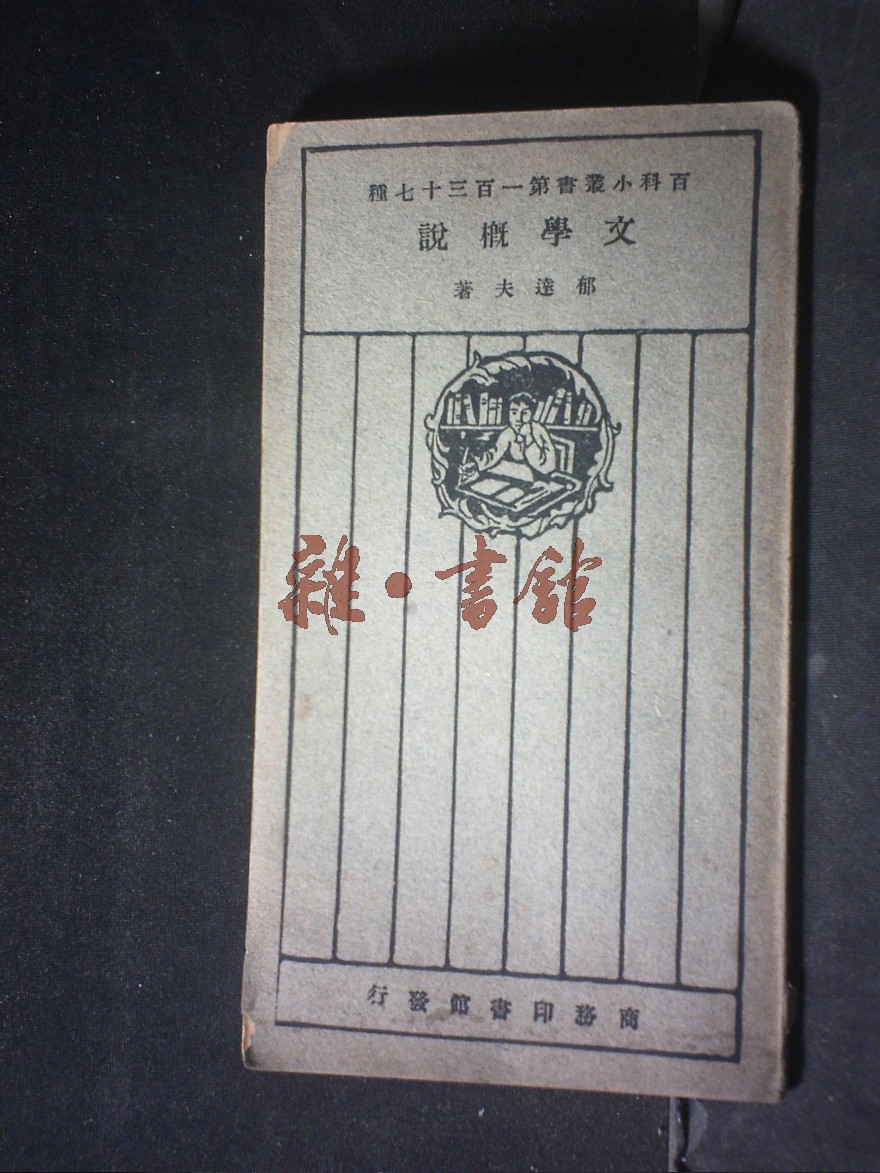 百科小叢書第一百三十七種
文學概說
郁達夫著
雜·書館
商務印書館發行